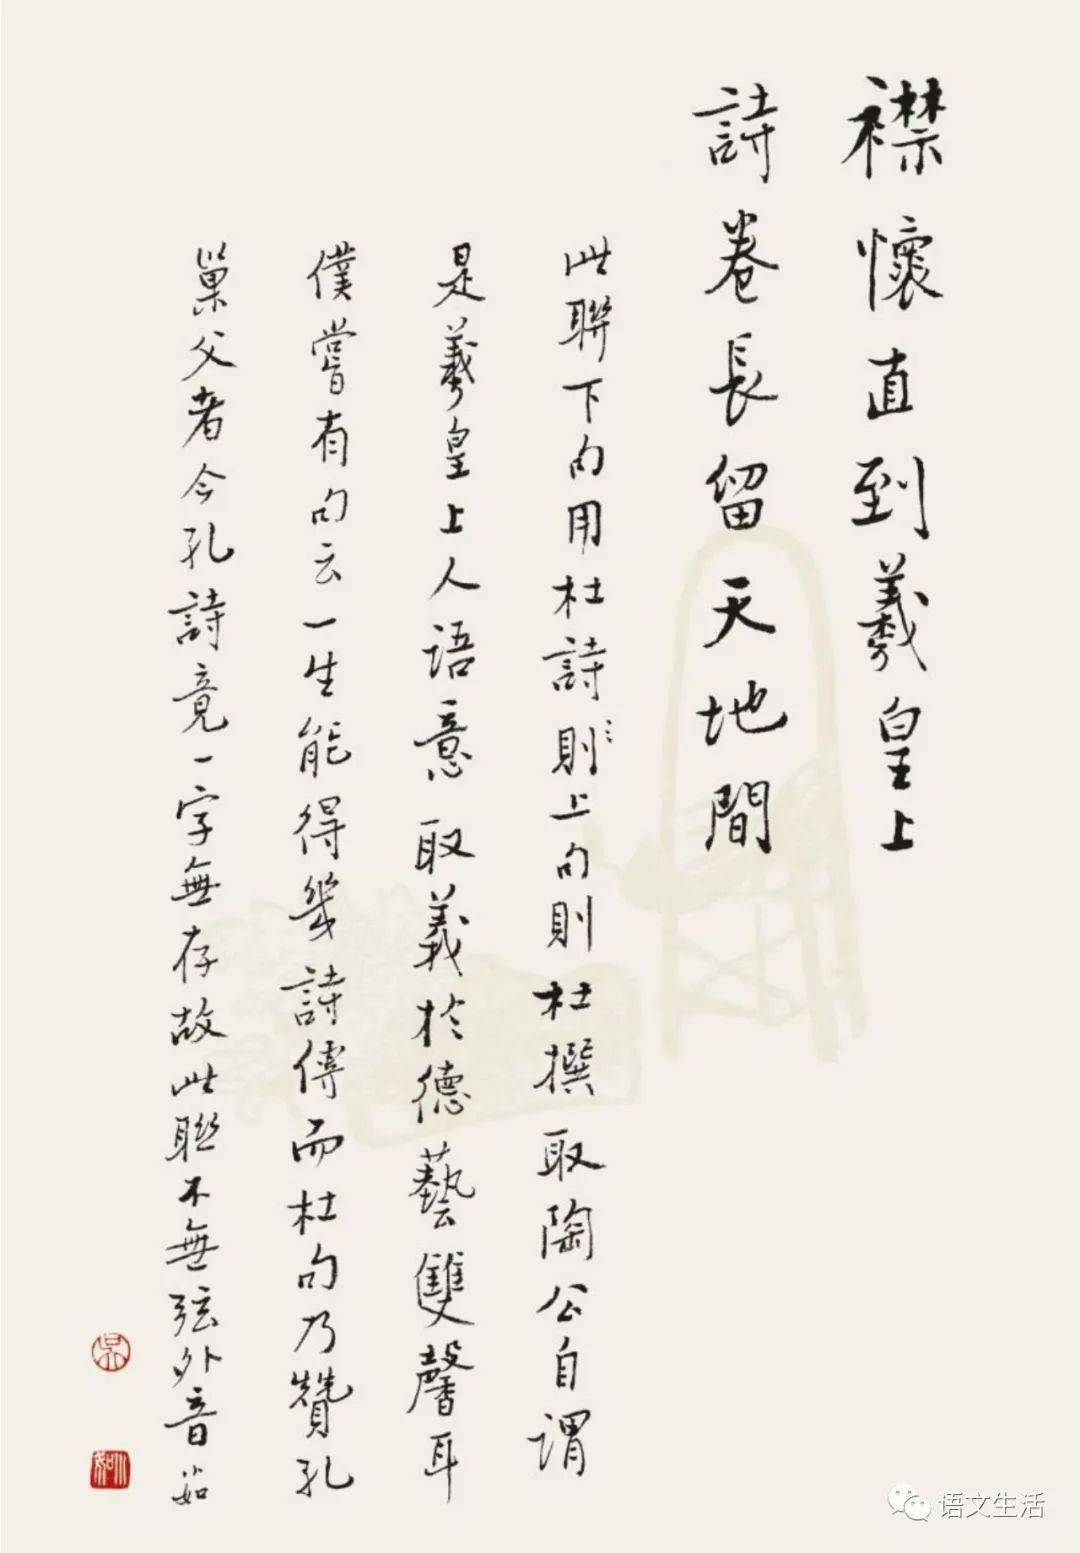 襟懷直到羲皇上
詩卷長留天地間
此聯下句用杜詩則上句則杜撰取陶公自謂
是羲皇上人语意取義於德藝雙馨耳
僕嘗有句云一生能得幾詩傳而杜句乃贊孔
巢父者今孔詩竟一字無存故此聯不無弦外音
语文生活